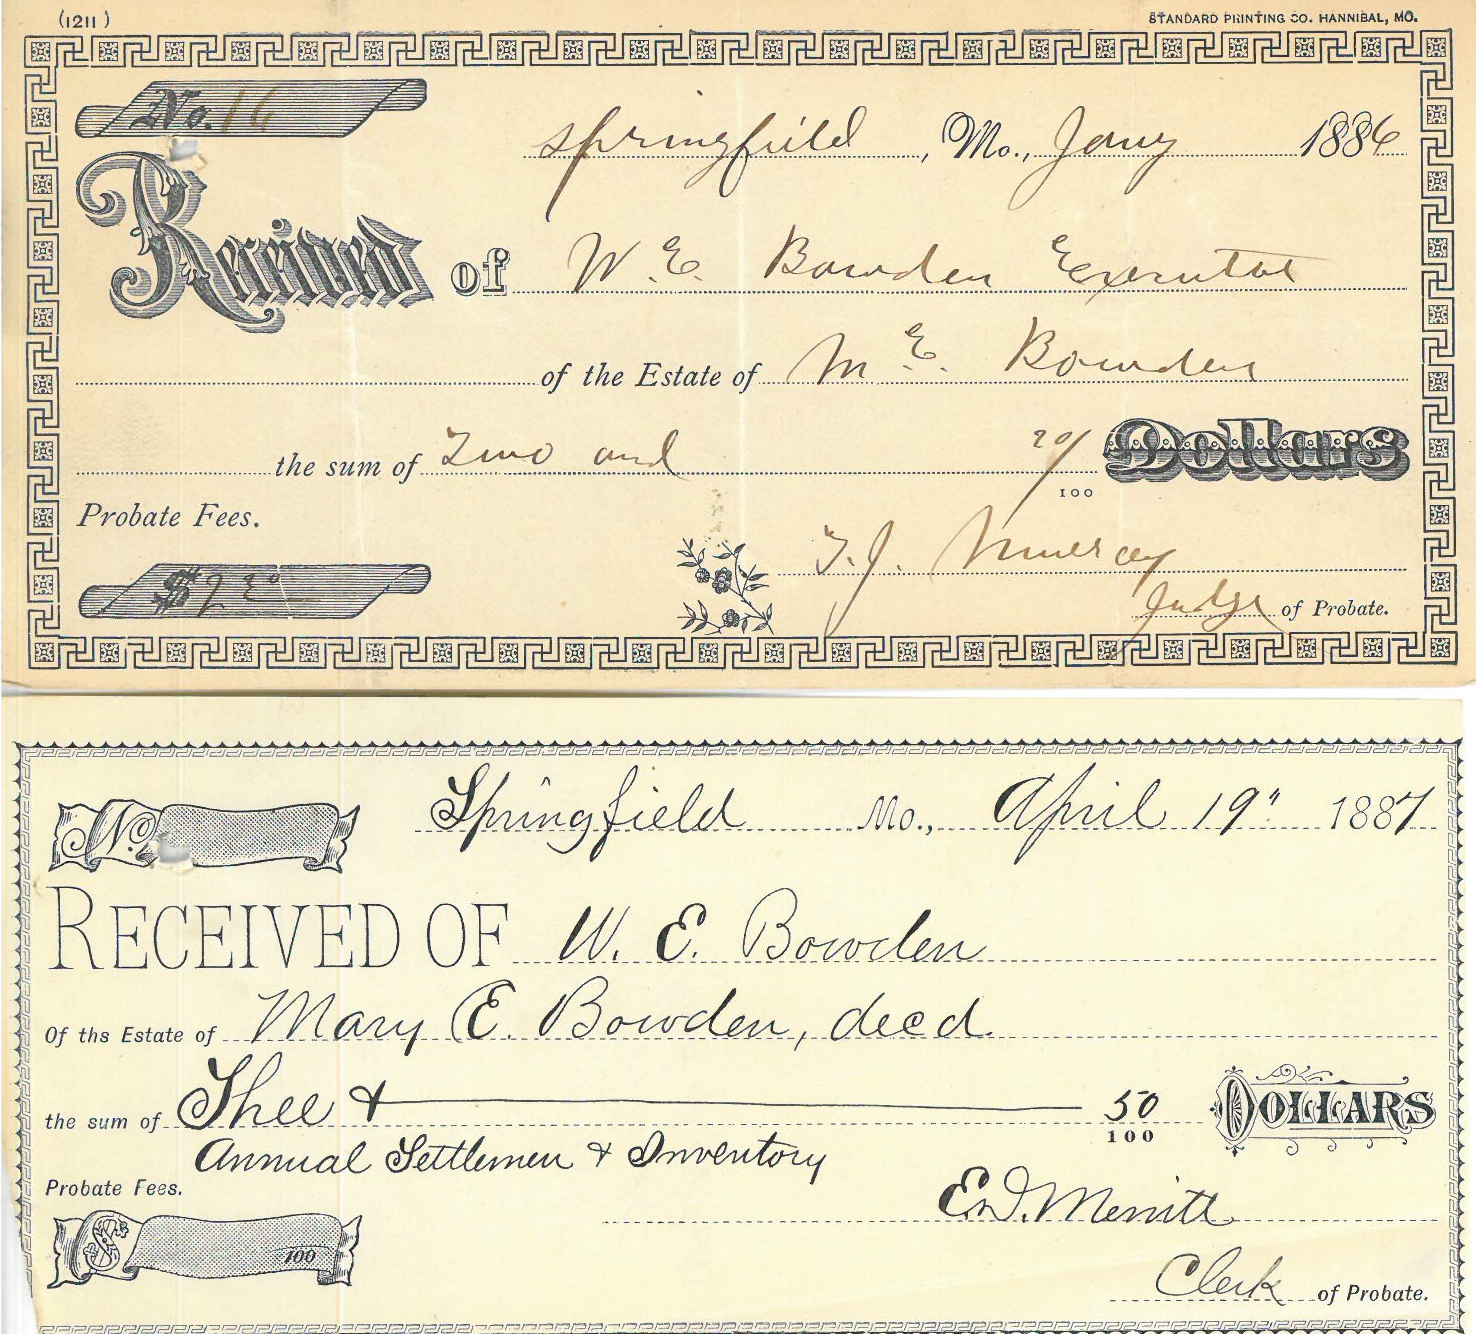 (1211) STANDARD PRINTING CO. HANNIBAL, MO.
No. 16
Springfield, Mo., Jany 1886
Received of W. E. Bowden Executor
of the Estate of M. E. Bowden
the sum of Two and 20/100 Dollars
Probate Fees.
$2 20
T. J. Murray
Judge of Probate.
No.
Springfield Mo., April 19" 1887
RECEIVED OF W. E. Bowden
Of ths Estate of Mary E. Bowden, decd.
the sum of Thee & 50/100 DOLLARS
Annual Settlemen & Inventory
Probate Fees.
E. D. Merritt
$ 100
Clerk of Probate.